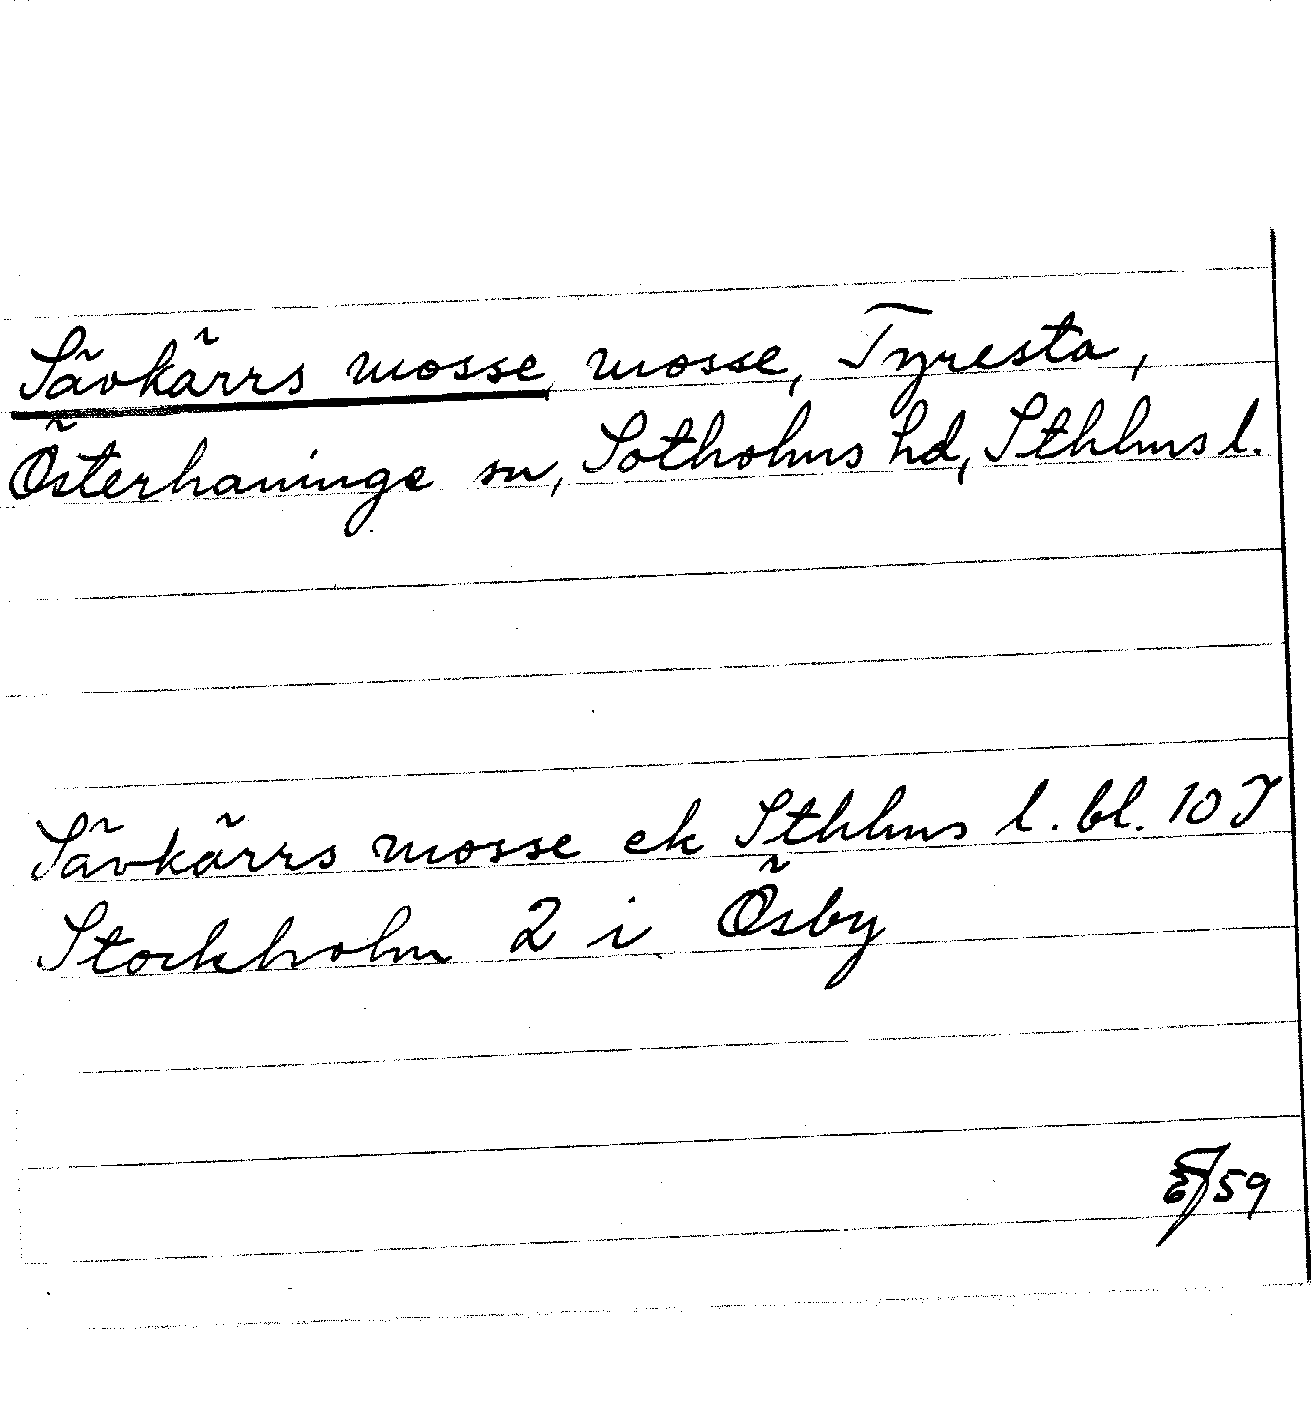 Sävkärrs mosse, mosse, Tyresta,
Österhaninge sn, Sotholms hd, Sthlms l.
Sävkärrs mosse ek Sthlms l. bl. 10 I
Stockholm 2 i Ösby
59